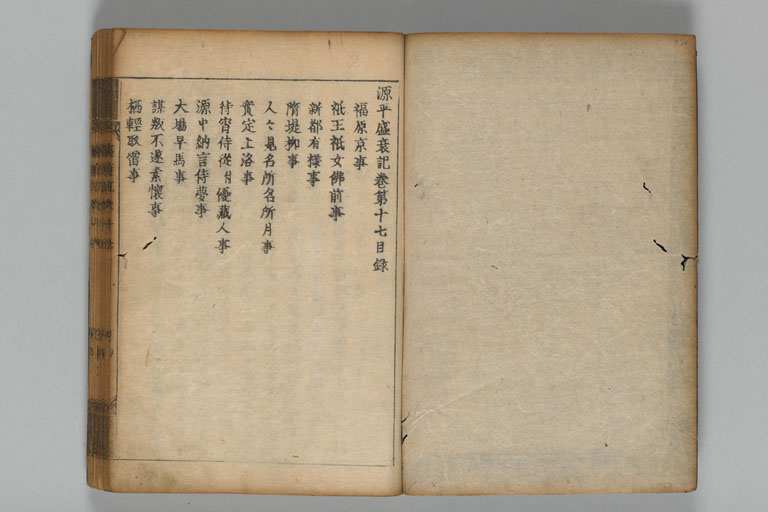 源平盛衰記巻第十七目録
福原京事
祇王祇女佛前事
新都有様事
隋堤柳事
人々見名所名所月事
實定上洛事
待宵侍從付優蔵人事
源中納言侍夢事
大場早馬事
謀叛不遂素懐事
栖輕取雷事